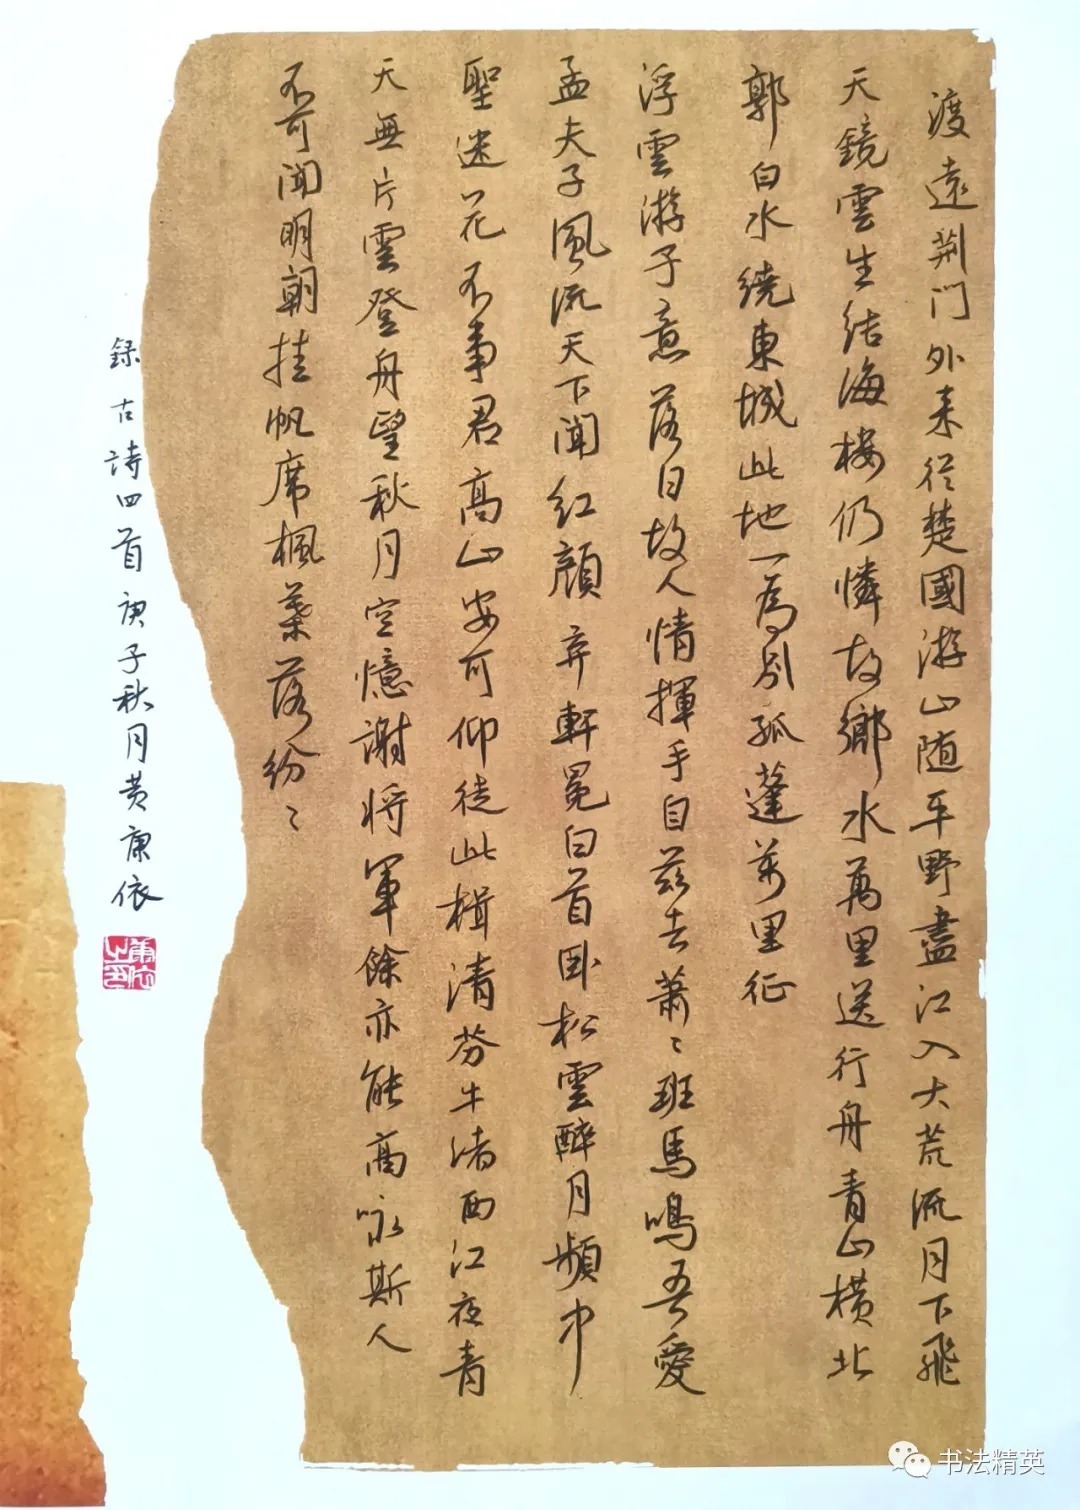 渡遠荆门外来従楚國游山随平野盡江入大荒流月下飛
天鏡雲生结海楼仍憐故鄉水萬里送行舟青山横北
郭白水繞東城此地一為别孤蓬万里征
浮雲游子意落日故人情揮手自兹去萧〻班馬鳴吾愛
孟夫子風流天下闻红顔弃軒冕白首卧松雲醉月頻中
聖迷花不事君高山安可仰徒此楫清芬牛渚西江夜青
天無片雲登舟望秋月空憶謝将軍餘亦能高咏斯人
不可闻明朝挂帆席楓葉落纷〻
録古詩四首庚子秋月黄康依
书法精英